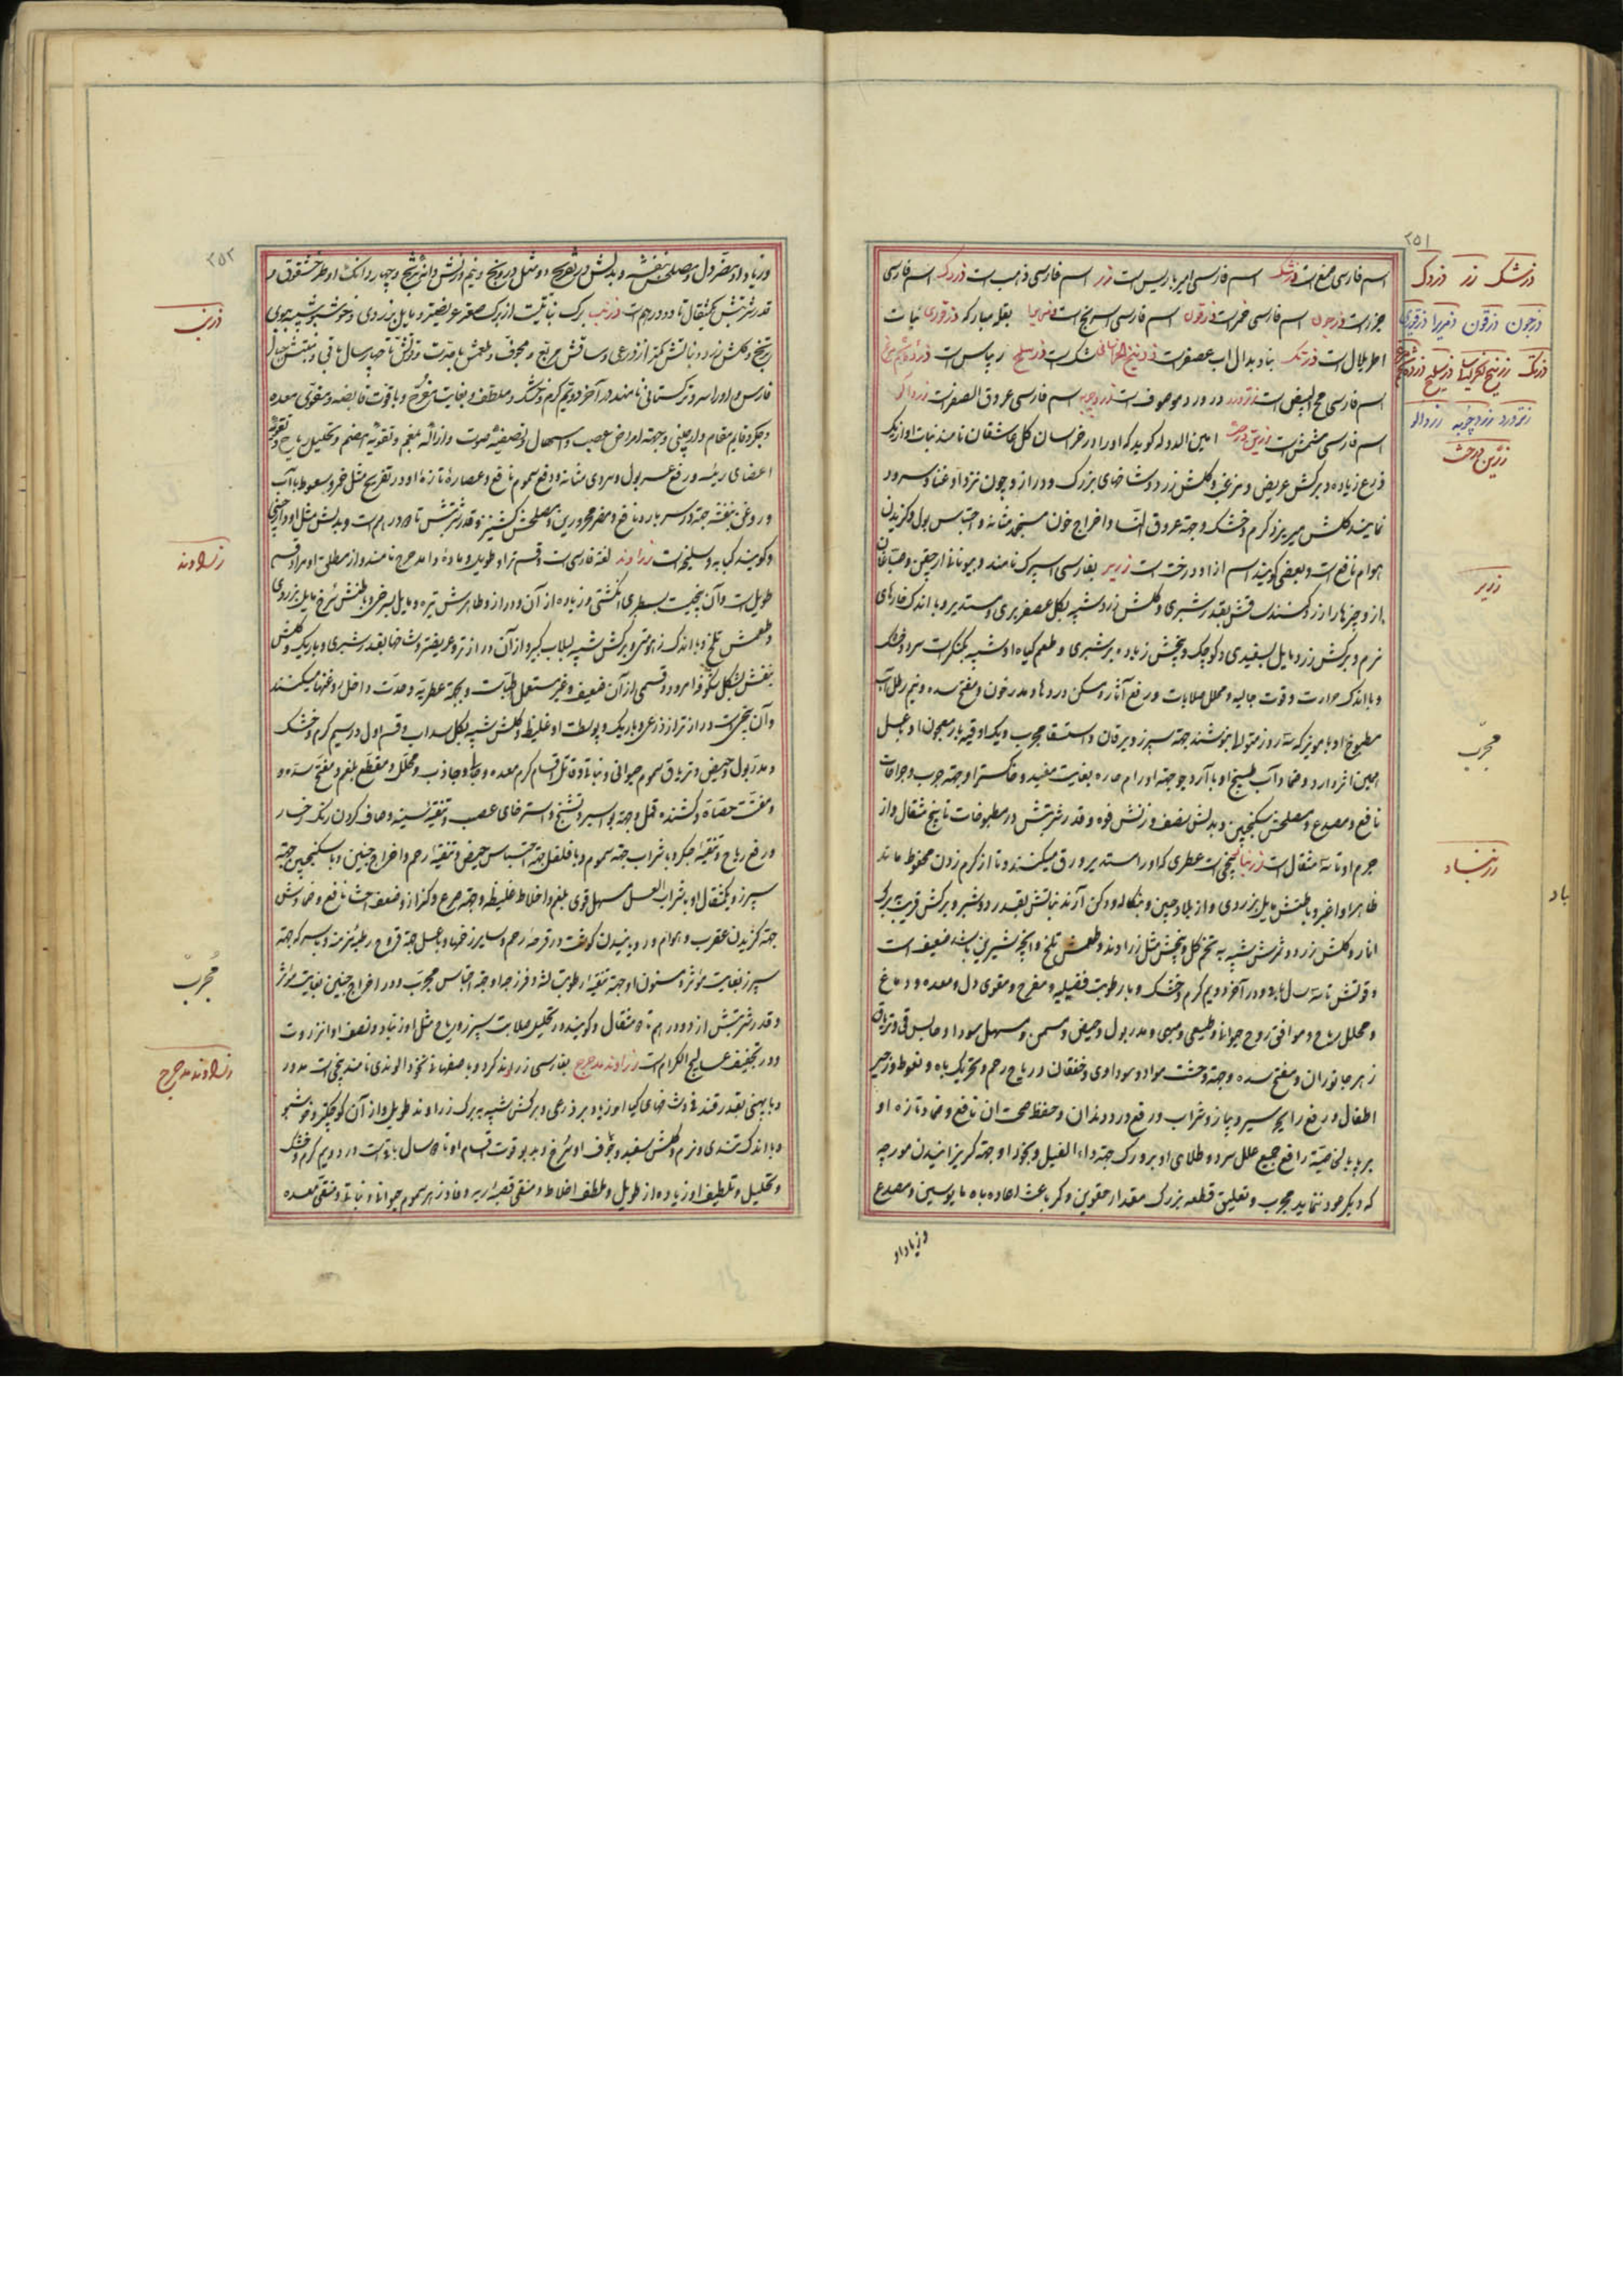 ۲۵۱
زرشک زر زردک
زرجون زرقون زرمیرا زرقوری
زرنک
زردچوبه زردالو
زرین درخت
زریر
مجرّب
زرنباد
باد
اسم فارسی است زرشک اسم فارسی امبرباریس است زر اسم فارسی ذهب است زردک اسم فارسی
جزر است زرجون اسم فارسی خمر است زرقون اسم فارسی اسرنج است بقله مبارکه زرقوری نبات
اطریلال است زرنک
اسم فارسی مح البیض است در ورد موصوف است زردچوبه اسم فارسی عروق الصفر است زردالو
اسم فارسی مشمش است زرین درخت امین الدوله کوید که او را در خراسان کل عاشقان نامند نبات او از یک
ذرع زیاده و برکش عریض و کلش زرد و شاخهای بزرک و دراز و چون نزد او غنا و سرود
نمایند کلش میریزد کرم و خشک و جهة عروق النسا و اخراج خون منجمد مثانه و احتباس بول و کزیدن
هوام نافع است و بعضی کویند اسم ازاد درخت است زریر بفارسی اسپرک نامند و بیونانی
از و چیزها را زرد کنند ساقش بقدر شبری و کلش زرد شبیه بکل عصفر بری و مستدیر و با اندک خارهای
نرم و برکش زرد مایل بسفیدی و کوچک و بیخش زیاده بر شبری و طعم کیاه او شبیه بکنکر است سرد و خشک
و با اندک حرارت و قوت جالیه و محلل صلابات و رفع آثار و مسکن دردها و مدر خون و مفتح سده و نیم رطل آب
مطبوخ او با مویز که سه روز متوالی بنوشند جهة سپرز و یرقان و استسقا مجرب و یک اوقیه با عسل
همین اثر دارد و ضماد آب طبیخ او با آرد جو جهة اورام حاره بغایت مفید و خاکستر او جهة جرب و جراحات
نافع و مصدع و مصلحش سکنجبین و بدلش نصف وزنش فوه و قدر شربتش در مطبوخات تا پنج مثقال و از
جرم او تا سه مثقال است زرنباد بیخی است عطری که او را مستدیر ورق میکنند و تا از کرم زدن محفوظ ماند
ظاهر او اغبر و باطنش مایل بزردی و از بلاد چین و بنکاله و دکن آرند نباتش بقدر دو شبر و برکش قریب ببرک
انار و کلش زرد و ثمرش شبیه به تخم کل و بیخش مثل زراوند و طعمش تلخ و آنچه شیرین باشد ضعیف است
و قوتش تا سه سال باقی و در آخر دویم کرم و خشک و با رطوبت فضلیه و مفرح و مقوی دل و معده و دماغ
و محلل ریاح و موافق روح حیوانی و طبیعی و مبهی و مدر بول و حیض و مسمن و مسهل سودا و حابس قی و تریاق
زهر جانوران و مفتح سده و جهة وحشت مواد سوداوی و خفقان و ریاح رحم و تحریک باه و نعوظ و زحیر
اطفال و رفع رایحه سیر و پیاز و شراب و رفع درد دندان و حفظ صحت آن نافع و ضماد تازه او
بر پا بالخاصیة رافع جمیع علل سرد و طلای او بر ورک جهة داء الفیل و بخور او جهة کریزانیدن مورچه
که دیکر عود ننماید مجرب و تعلیق قطعه بزرک مقدار حقوین و کمر باعث اعاده باه مایوسین و مصدع
و زیاد او
۲۵۲
زرنب
زراوند
مُجربّ
زراوند مدحرج
و زیاد او مضر دل و مصلحش بنفشه و بدلش در تفریح دو مثل درونج و نیم وزنش دانه ترنج و چهار دانک او طرخشقوق
قدر شربتش یکمثقال تا دو درهم است زرنب برک نباتیست از برک صعتر عریضتر و مایل بزردی و خوشبو شبیه ببوی
ترنج و کلش زرد و نباتش کمتر از ذرعی و ساقش مربع و مجوف و طعمش با حدت و قوتش تا چهار سال باقی
فارس و او را سرو ترکستانی نامند در آخر دویم کرم و خشک و ملطف و بغایت مفرح و با قوت قابضه و مقوی معده
و جکر و قایم مقام دارچینی و جهة امراض عصب و اسهال و تصفیه صوت و ازاله بلغم و تقویة هضم و تحلیل ریاح و تقویة
اعضای رئیسه و رفع عسر بول و سردی مثانه و دفع سموم نافع و عصاره تازه او در تفریح مثل خمر و سعوط با آب
و روغن بنفشه جهة درد سر بارد نافع و مضر محرورین و مصلحش کشنیز و قدر شربتش تا دو درهم است و بدلش مثل او دارچینی
و کویند کبابه و سلیخه است زراوند لغة فارسی است و قسم نر او طویل و ماده او مدحرج نامند و از مطلق او مراد قسم
طویل است و آن بیخیست بسطبری انکشتی و زیاده از آن و دراز و ظاهرش تیره و مایل بسرخی و باطنش سرخ مایل بزردی
و طعمش تلخ و با اندک زهومتی و برکش شبیه بلبلاب کبیر و از آن درازتر و عریضتر و شاخها بقدر شبری و باریک و کلش
بنفش بشکل شکوفه امرود و قسمی از آن ضعیف و غیر مستعمل اطباست و بجهة عطریة و حدت داخل روغنها میکنند
و آن بیخی است درازتر از ذرعی و باریک و پوست او غلیظ و کلش شبیه بکل سداب و قسم اول در سیم کرم و خشک
و مدر بول و حیض و تریاق سموم حیوانی و نباتی و قاتل اقسام کرم معده و جالی و جاذب و محلل و مقطع بلغم و مفتح سده و
و مفتت حصاة و کشنده قمل و جهة بواسیر و تشنج و استرخای عصب و تنقیه سینه و صاف کردن رنک رخسار
و رفع ریاح و تنقیه جکر و با شراب جهة سموم و با فلفل جهة احتباس حیض و تنقیه رحم و اخراج جنین و با سکنجبین جهة
سپرز و یکمثقال او با شراب العسل مسهل قوی بلغم و اخلاط غلیظه و جهة صرع و کزاز و ضعف احشا نافع و ضمادش
جهة کزیدن عقرب و هوام و رویانیدن کوشت در قرحه رحم و سایر زخمها و با عسل جهة قروح رطبه مزمنه و با سرکه جهة
سپرز بغایت موثر و سنون او جهة تنقیه رطوبت لثه و فرزجه او جهة احتباس مجرب و در اخراج جنین بغایت موثر
و قدر شربتش از دو درهم تا دو مثقال و کویند در تحلیل صلابت سپرز و ریاح مثل او زرنباد و نصف او انزروت
و در تجفیف عسالیج الکرم است زراوند مدحرج بفارسی زراوند کرد و باصفهانی نخود الوندی نامند بیخی است مدور
و با پهنی بقدر فندقی و شاخهای کیاه او زیاد بر ذرعی و برکش شبیه به برک زراوند طویل و از آن کوچکتر و خوشبو
و با اندک تندی و نرم و کلش سفید و مجوف او سرخ و بدبو قوت اقسام او تا دو سال باقیست در دویم کرم و خشک
و تحلیل و تلطیف او زیاده از طویل و ملطف اخلاط و منقی قصبه ریه و فادزهر سموم حیوانی و نباتی و منقی معده